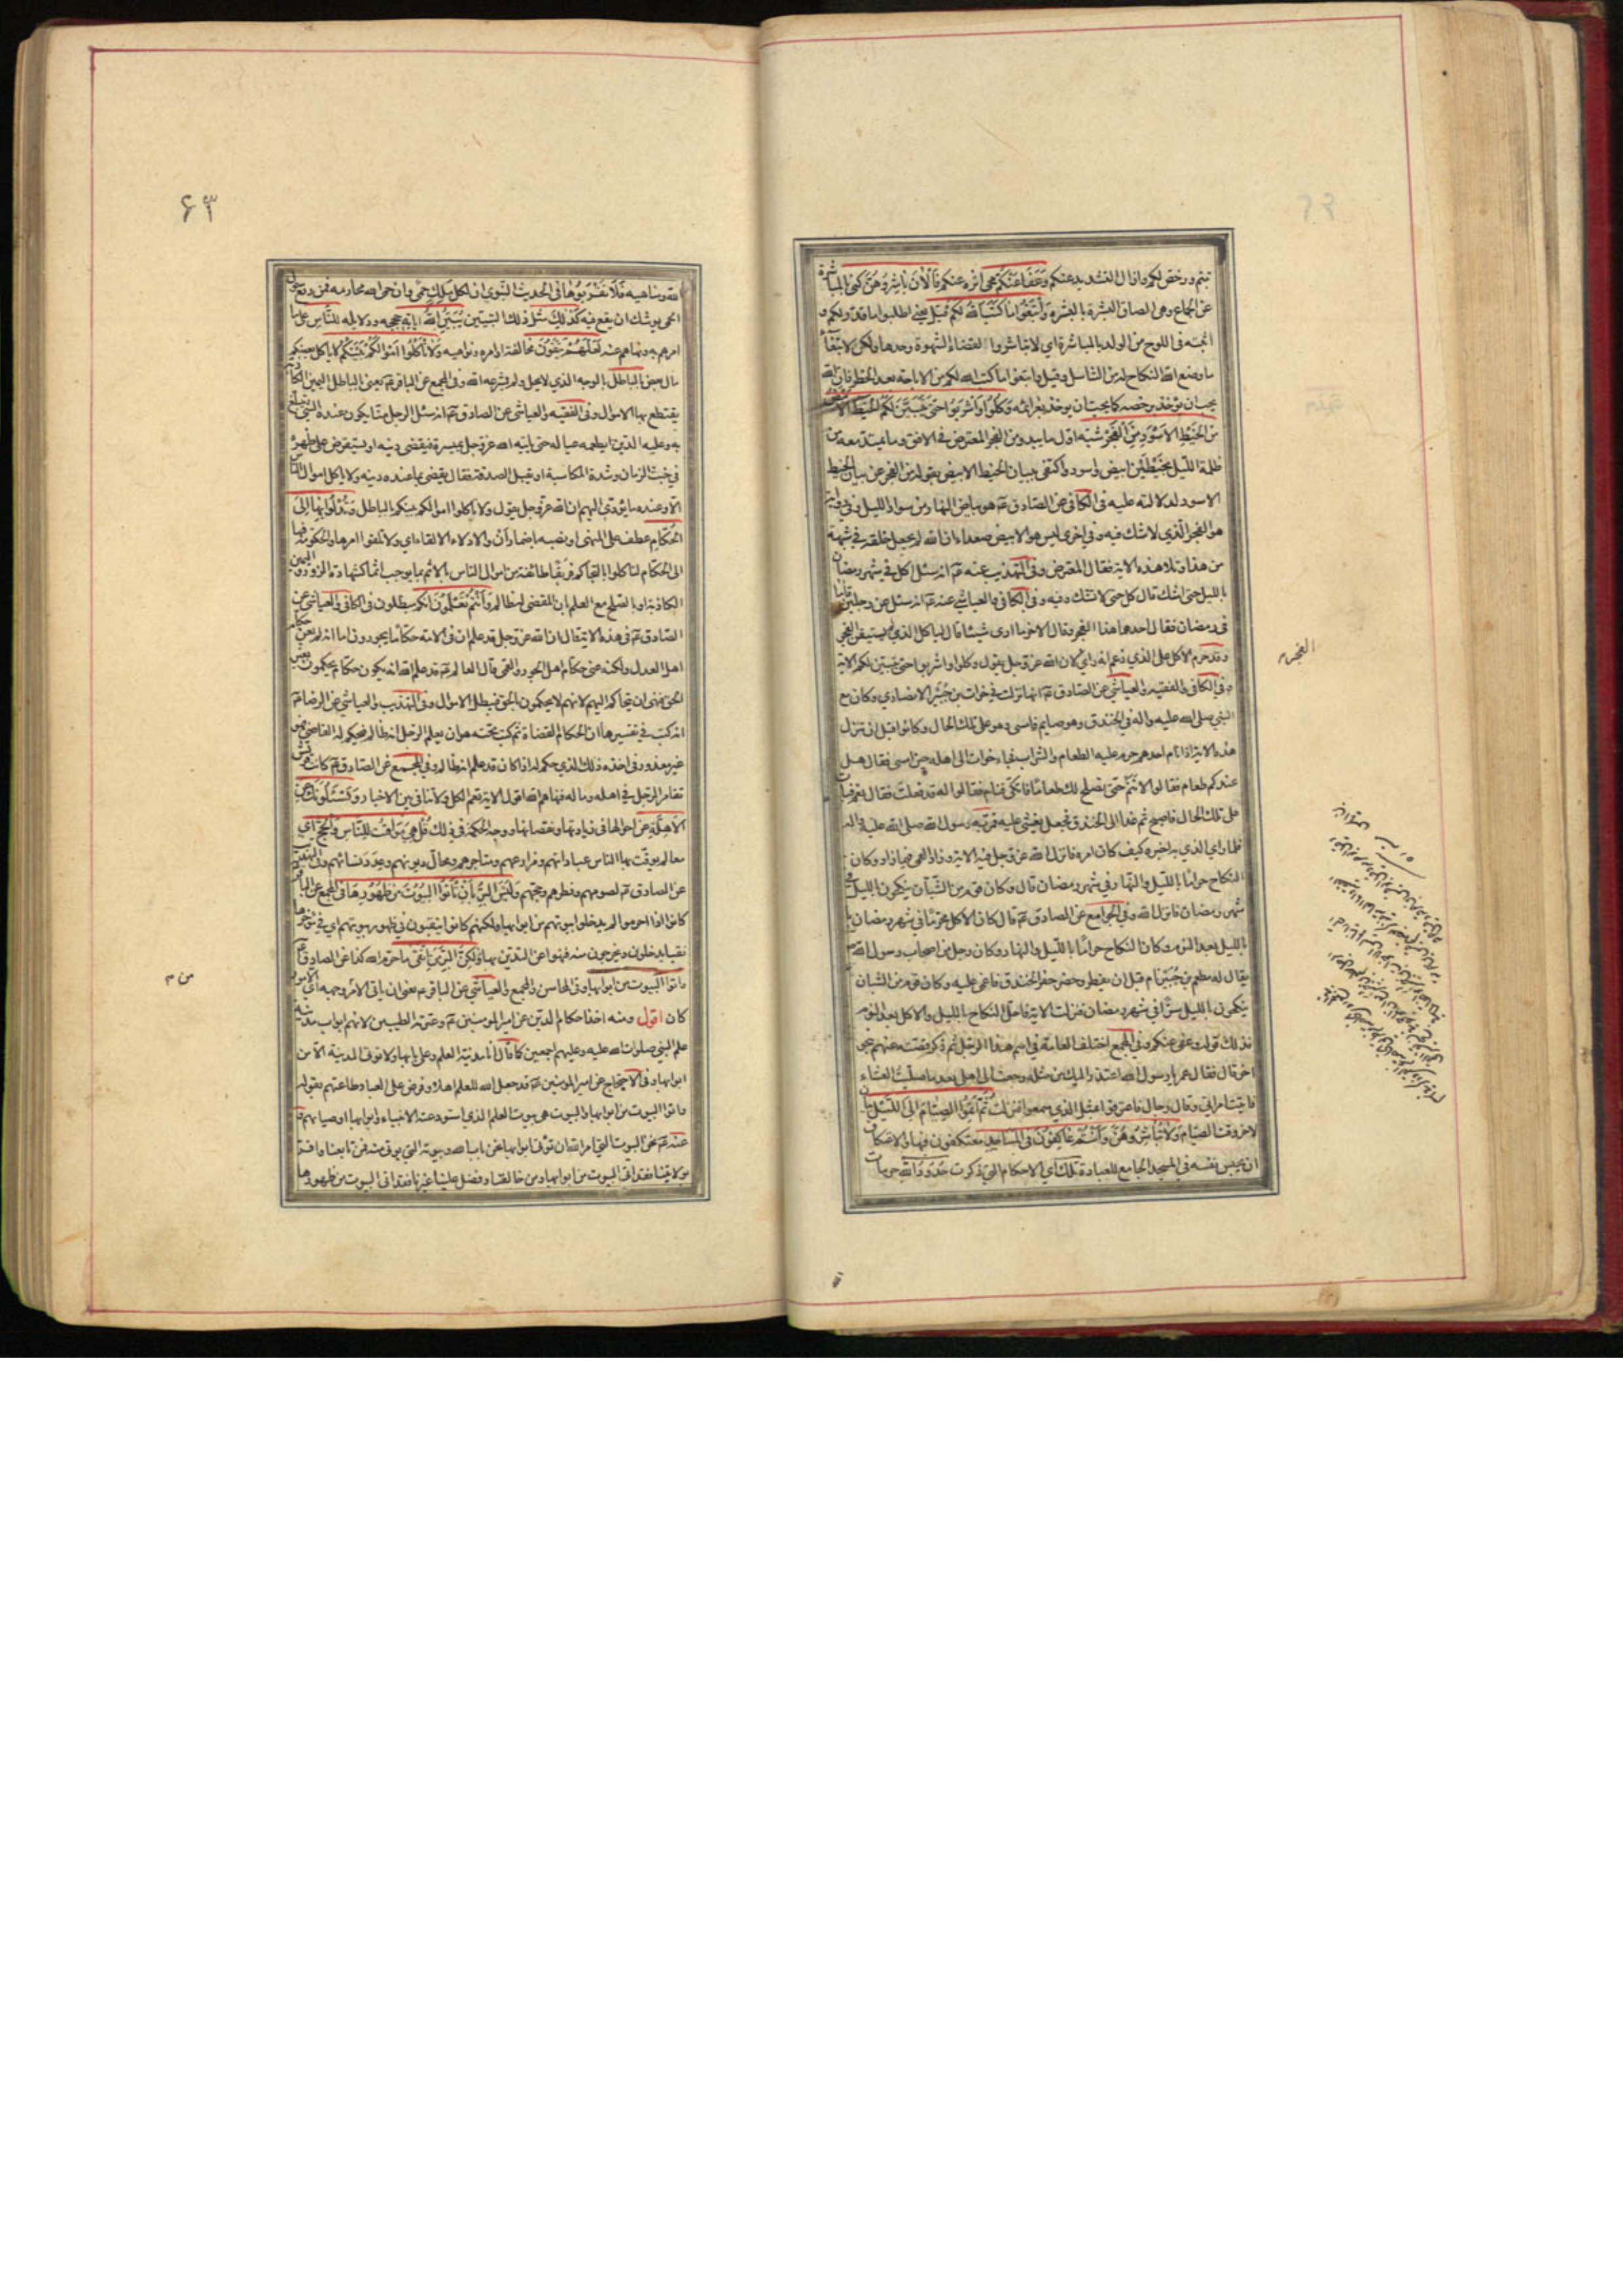 تبتم ورخص لكم وازال التشديد عنكم وَعَفَا عَنْكُمْ محى اثره عنكم فَالْآنَ بَاشِرُوهُنَّ كنى بالمباشرة
عن الجماع وهى الصاق البشرة بالبشرة وَابْتَغُوا مَا كَتَبَ اللهُ لَكُمْ قيل يعنى اطلبوا ما قدر لكم و
اثبته فى اللوح من الولد بالمباشرة اى لا تباشروا لقضاء الشهوة وحدها ولكن لابتغاء
ما وضع الله النكاح له من التناسل وقيل وابتغوا ما كتب الله لكم من الاباحة بعد الحظر فان الله
يحب ان يؤخذ برخصه كما يحب ان يؤخذ بعزائمه وَكُلُوا وَاشْرَبُوا حَتَّى يَتَبَيَّنَ لَكُمُ الْخَيْطُ الْأَبْيَضُ
مِنَ الْخَيْطِ الْأَسْوَدِ مِنَ الْفَجْرِ شبه اول ما يبدو من الفجر المعترض فى الافق وما يمتد معه من
ظلمة الليل بخيطين ابيض واسود واكتفى ببيان الخيط الابيض بقوله من الفجر عن بيان الخيط
الاسود لدلالته عليه فى الكافى عن الصادق عم هو بياض النهار من سواد الليل وفى رواية
هو الفجر الذى لا شك فيه وفى اخرى ليس هو الابيض صعداء ان الله لم يجعل خلقه فى شبهة
من هذا وتلا هذه الاية فقال المعترض وفى التهذيب عنه عم انه سئل اكل فى شهر رمضان
بالليل حتى اشك قال كل حتى لا تشك وفيه وفى الكافى والعياشى عنه عم انه سئل عن رجلين قاما
فى رمضان فقال احدهما هذا الفجر وقال الاخر ما ارى شيئا قال لياكل الذى لم يستيقن الفجر
وقد حرم الاكل على الذى زعم انه راى لان الله عز وجل يقول وكلوا واشربوا حتى يتبين لكم الاية
وفى الكافى والفقيه والعياشى عن الصادق عم انها نزلت فى خوات بن جُبَير الانصارى وكان مع
النبى صلى الله عليه واله فى الخندق وهو صايم فامسى وهو على تلك الحال وكانوا قبل ان تنزل
هذه الاية اذا نام احدهم حرم عليه الطعام والشراب فجاء خوات الى اهله حين امسى فقال هل
عندكم طعام فقالوا لا تنم حتى نصلح لك طعاما فاتكى فنام فقالوا له قد فعلت فقال نعم فبات
على تلك الحال فاصبح ثم غدا الى الخندق فجعل يغشى عليه فمر به رسول الله صلى الله عليه واله
فلما راى الذى به اخبره كيف كان امره فانزل الله عز وجل فيه الاية
النكاح حراما بالليل والنهار فى شهر رمضان قال وكان قوم من الشبان ينكحون بالليل
شهر رمضان فانزل الله وفى الجوامع عن الصادق عم قال كان الاكل محرما فى شهر رمضان
بالليل بعد النوم وكان النكاح حراما بالليل والنهار وكان رجل من اصحاب رسول الله ص
يقال له مطعم بن جُبَير نام قبل ان يفطر وحضر حفر الخندق فاغمى عليه وكان قوم من الشبان
ينكحون بالليل سرا فى شهر رمضان فنزلت الاية فاحل النكاح بالليل والاكل بعد النوم
فذلك قوله وعفى عنكم وفى المجمع اختلف العامة فى اسم هذا الرجل ثم ذكر قصته عنهم
اخر قال فقال عمر يا رسول الله اعتذر اليك من مثله رجعت الى اهلى بعد ما صليت العشاء
فاتيت امراتى وقال رجال فاعترفوا بمثل الذى سمعوا فنزلت ثُمَّ أَتِمُّوا الصِّيَامَ إِلَى اللَّيْلِ بيان
لاخر وقت الصيام وَلَا تُبَاشِرُوهُنَّ وَأَنْتُمْ عَاكِفُونَ فِي الْمَسَاجِدِ معتكفون فيها والاعتكاف
ان يحبس نفسه فى المسجد الجامع للعبادة تلك اى الاحكام التى ذكرت حُدُودُ اللهِ حرمات
الفجر م
٦٣
الله ومناهيه فَلَا تَقْرَبُوهَا فى الحديث النبوى ان لكل ملك حمى وان حمى الله محارمه فمن رتع حول
الحمى يوشك ان يقع فيه كَذَلِكَ مثل ذلك التبيين يُبَيِّنُ اللهُ آيَاتِهِ حججه ودلايله لِلنَّاسِ على ما
امرهم به ونهاهم عنه لَعَلَّهُمْ يَتَّقُونَ مخالفة اوامره ونواهيه وَلَا تَأْكُلُوا أَمْوَالَكُمْ بَيْنَكُمْ لا ياكل بعضكم
مال بعض بِالْبَاطِلِ بالوجه الذى لا يحل ولم يشرعه الله وفى المجمع عن الباقر عم يعنى بالباطل اليمين الكاذبة
يقتطع بها الاموال وفى الفقيه والعياشى عن الصادق عم انه سئل الرجل منا يكون عنده الشئ يتبلغ
به وعليه الدين ايطعمه عياله حتى ياتيه الله عز وجل بميسرة فيقضى دينه او يستقرض على ظهره
فى خبث الزمان وشدة المكاسبة او يقبل الصدقة فقال يقضى بما عنده دينه ولا ياكل اموال الناس
الا وعنده ما يؤدى اليهم ان الله عز وجل يقول ولا تاكلوا اموالكم بينكم بالباطل وَتُدْلُوا بِهَا إِلَى
الْحُكَّامِ عطف على المنهى او نصب باضمار ان والادلاء الالقاء اى ولا تلقوا امرها والحكومة فيها
الى الحكام لتاكلوا بالتحاكم فريقا طائفة من اموال الناس بالاثم بما يوجب اثما كشهادة الزور واليمين
الكاذبة او بالصلح مع العلم بان المقضى له ظالم وَأَنْتُمْ تَعْلَمُونَ انكم مبطلون فى الكافى والعياشى عن
الصادق عم فى هذه الاية قال ان الله عز وجل قد علم ان فى الامة حكاما يجورون اما انه لم يعن حكام
اهل العدل ولكنه عنى حكام اهل الجور والقمى قال العالم عم قد علم الله انه يكون حكام يحكمون بغير
الحق فنهى ان يتحاكم اليهم لانهم لا يحكمون بالحق فيبطل الاموال وفى التهذيب والعياشى عن الرضا عم
انه كتب فى تفسيرها ان الحكام القضاة ثم كتب تحته هو ان يعلم الرجل انه ظالم فيحكم له القاضى فهو
غير معذور فى اخذه ذلك الذى حكم له اذا كان قد علم انه ظالم وفى المجمع عن الصادق عم كانت قريش
تقامر الرجل فى اهله وماله فنهاهم الله اقول الاية تعم الكل ولا تنافى بين الاخبار وَيَسْأَلُونَكَ عَنِ
الْأَهِلَّةِ عن احوالها فى زيادتها ونقصانها ووجه الحكمة فى ذلك قُلْ هِيَ مَوَاقِيتُ لِلنَّاسِ وَالْحَجِّ اى
معالم يوقت بها الناس عباداتهم ومزارعهم ومتاجرهم ومحال ديونهم وعدد نسائهم وفى التهذيب
عن الصادق عم لصومهم وفطرهم وحجهم وَلَيْسَ الْبِرُّ بِأَنْ تَأْتُوا الْبُيُوتَ مِنْ ظُهُورِهَا فى المجمع عن الباقر
كانوا اذا احرموا لم يدخلوا بيوتهم من ابوابها ولكنهم كانوا ينقبون فى ظهور بيوتهم اى فى مؤخرها
نقبا يدخلون ويخرجون منه فنهوا عن التدين بها وَلَكِنَّ الْبِرَّ مَنِ اتَّقَى ما حرم الله كذا عن الصادق عم
وَأْتُوا الْبُيُوتَ مِنْ أَبْوَابِهَا وفى المحاسن والمجمع والعياشى عن الباقر عم يعنى ان ياتى الامر من وجهه اى الامور
كان اقول ومنه اخذ احكام الدين عن امير المومنين عم وعترته الطيبين لانهم ابواب مدينة
علم النبى صلوات الله عليه وعليهم اجمعين كما قال انا مدينة العلم وعلى بابها ولا تؤتى المدينة الا من
بابها وفى الاحتجاج عن امير المومنين عم قد جعل الله للعلم اهلا وفرض على العباد طاعتهم بقوله
واتوا البيوت من ابوابها والبيوت هى بيوت العلم الذى استودعته الانبياء وابوابها اوصياؤهم و
عنه عم نحن البيوت التى امر الله ان تؤتى ابوابها نحن باب الله وبيوته التى يؤتى منه فمن تابعنا واقر
بولايتنا فقد اتى البيوت من ابوابها ومن خالفنا وفضل علينا غيرنا فقد اتى البيوت من ظهورها
من م